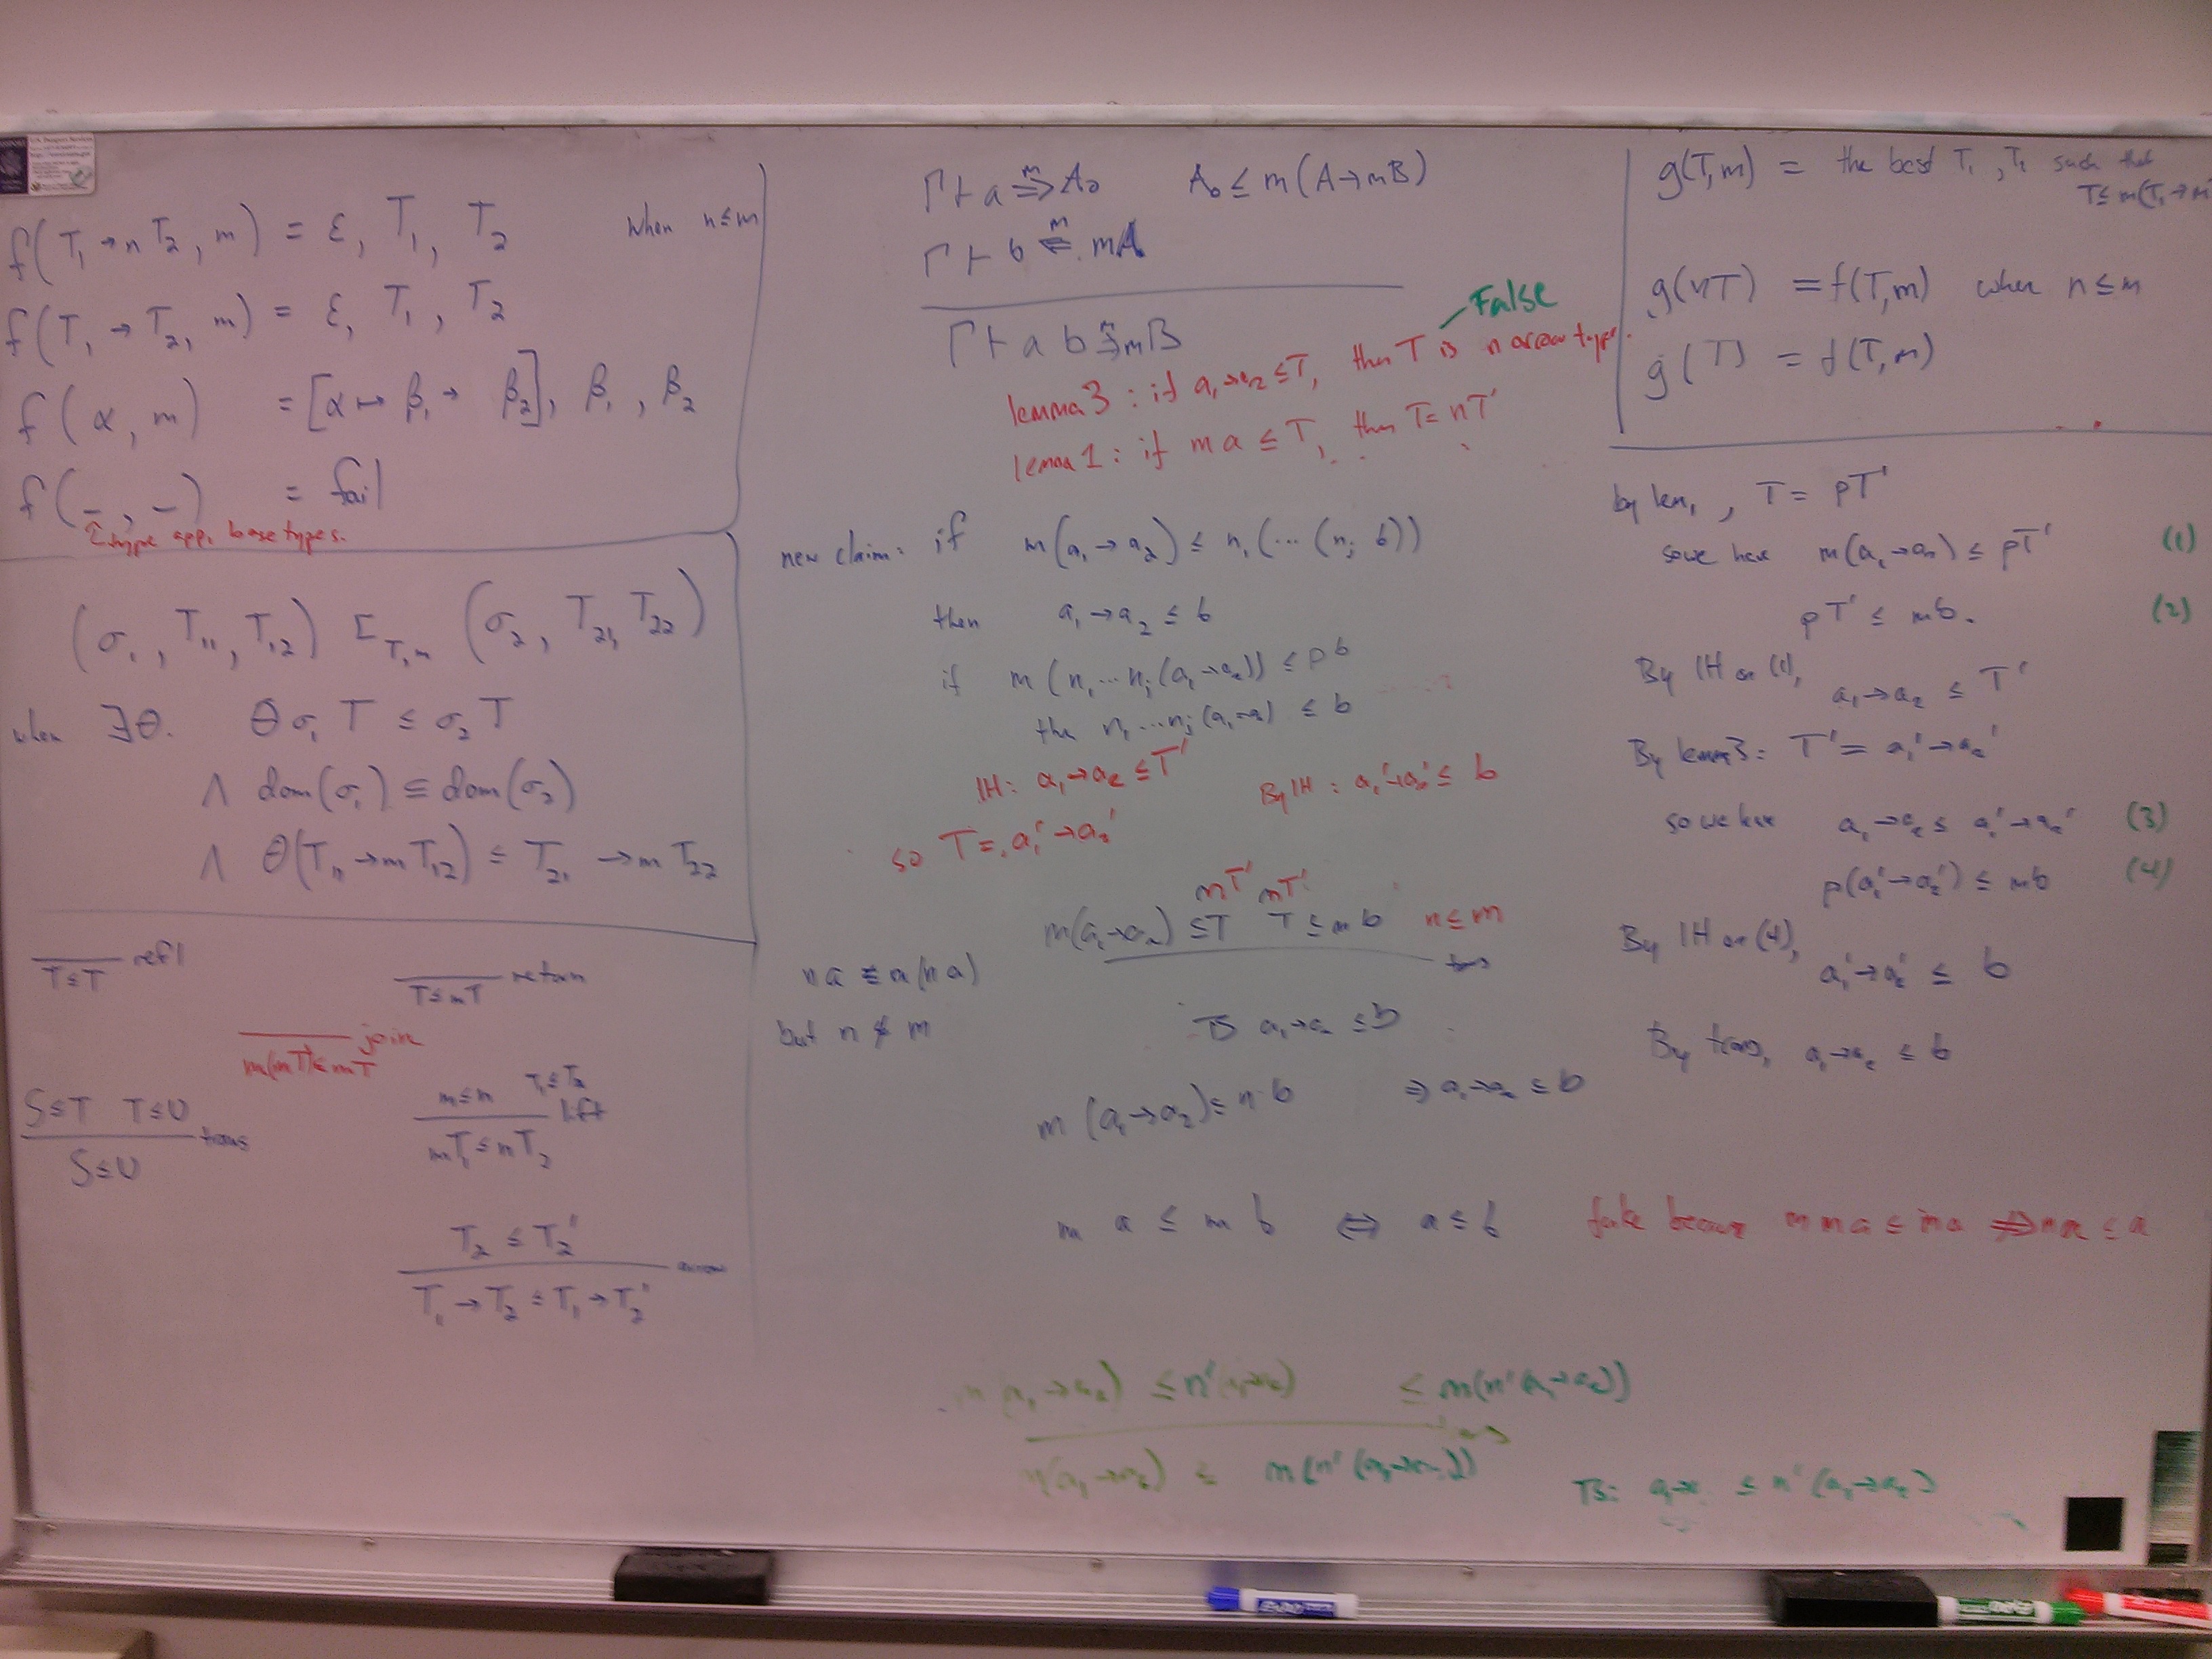 f(T₁ →n T₂, m) = ε, T₁, T₂ when n≤m
f(T₁ → T₂, m) = ε, T₁, T₂
f(α, m) = [α ↦ β₁ → β₂], β₁, β₂
f(_, _) = fail
type app, base types.
(σ₁, T₁₁, T₁₂) ⊑T,m (σ₂, T₂₁, T₂₂)
when ∃θ. θσ₁T ≤ σ₂T
∧ dom(σ₁) ⊆ dom(σ₂)
∧ θ(T₁₁ →m T₁₂) ≤ T₂₁ →m T₂₂
T≤T refl
T≤mT return
m(mT)≤mT join
S≤T T≤U
S≤U trans
m≤n T₁≤T₂
mT₁≤nT₂ lift
T₂ ≤ T₂'
T₁ → T₂ ≤ T₁ → T₂' arrow
Γ ⊢ a ⇒m A₀ A₀ ≤ m(A→mB)
Γ ⊢ b ⇐m mA
Γ ⊢ a b ⇒m mB
False
lemma 3: if a₁→a₂ ≤T, then T is narrow type.
lemma 1: if m a ≤ T, then T= nT'
new claim: if m(a₁ → a₂) ≤ n₁(⋯(nⱼ b))
then a₁ → a₂ ≤ b
if m(n₁⋯nⱼ(a₁→a₂)) ≤ p b
the n₁⋯nⱼ(a₁→a₂) ≤ b
IH: a₁→a₂ ≤T' By IH: a₁'→a₂' ≤ b
so T= a₁'→a₂'
nT' nT'
m(a₁→a₂) ≤T T≤mb n≤m
trans
n a ≤ m(n a)
but n ≰ m
TS a₁→a₂ ≤b
m(a₁→a₂)≤n b ⇒ a₁→a₂ ≤ b
m a ≤ m b ⇔ a≤b false because m m a ≤ m a ⇏ m a ≤ a
n(a₁→a₂) ≤n'(a₁→a₂) ≤ m(n'(a₁→a₂))
n(a₁→a₂) ≤ m(n'(a₁→a₂))
TS: a₁→a₂ ≤ n'(a₁→a₂)
g(T,m) = the best T₁, T₂ such that
T≤m(T₁→m
g(nT) = f(T,m) when n≤m
g(T) = f(T,m)
by lem₁, T= pT'
so we have m(a₁→a₂) ≤ pT' (1)
pT' ≤ mb. (2)
By IH on (1),
a₁→a₂ ≤ T'
By lemma3: T'= a₁'→a₂'
so we have a₁→a₂ ≤ a₁'→a₂' (3)
p(a₁'→a₂') ≤ mb (4)
By IH on (4),
a₁'→a₂' ≤ b
By trans, a₁→a₂ ≤ b